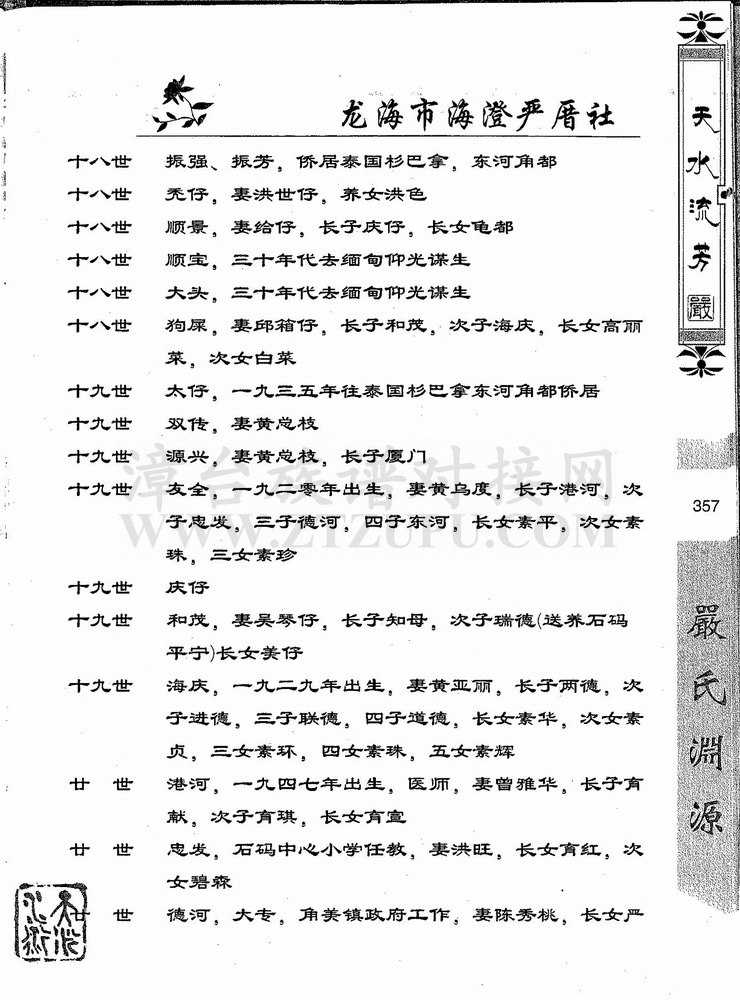 龙海市海澄严厝社
十八世 振强、振芳，侨居泰国杉巴拿，东河角都
十八世 秃仔，妻洪世仔，养女洪色
十八世 顺景，妻给仔，长子庆仔，长女龟都
十八世 顺宝，三十年代去缅甸仰光谋生
十八世 大头，三十年代去缅甸仰光谋生
十八世 狗屎，妻邱箱仔，长子和茂，次子海庆，长女高丽
菜，次女白菜
十九世 太仔，一九三五年往泰国杉巴拿东河角都侨居
十九世 双传，妻黄总枝
十九世 源兴，妻黄总枝，长子厦门
十九世 友全，一九二零年出生，妻黄乌度，长子港河，次
子忠发，三子德河，四子东河，长女素平，次女素
珠，三女素珍
十九世 庆仔
十九世 和茂，妻吴琴仔，长子知母，次子瑞德(送养石码
平宁)长女美仔
十九世 海庆，一九二九年出生，妻黄亚丽，长子两德，次
子进德，三子联德，四子道德，长女素华，次女素
贞，三女素环，四女素珠，五女素辉
廿世 港河，一九四七年出生，医师，妻曾雅华，长子育
献，次子育琪，长女育宣
廿世 忠发，石码中心小学任教，妻洪旺，长女育红，次
女碧森
廿世 德河，大专，角美镇政府工作，妻陈秀桃，长女严
天水流芳
嚴
357
嚴氏淵源
漳台族谱对接网
WWW.ZTZUPU.COM